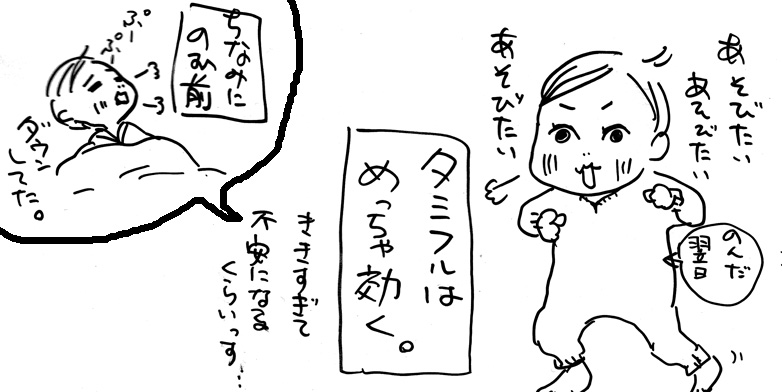 あそびたい
あそびたい
あそびたい
のんだ
翌日
タミフルは
めっちゃ効く。
ききすぎて
不安になる
くらいっす…
ちなみに
のむ前
ぷー
ぷー
ダウン
してた。